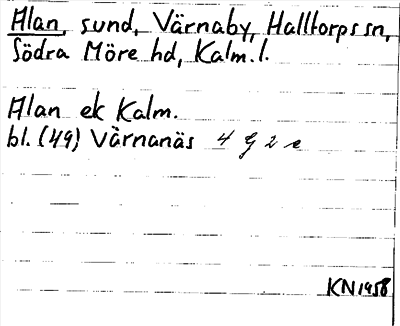 Alan, sund, Värnaby, Halltorps sn,
Södra Möre hd, Kalm. l.
Alan ek Kalm.
bl. (49) Värnanäs 4 G 2 e
KN 1958